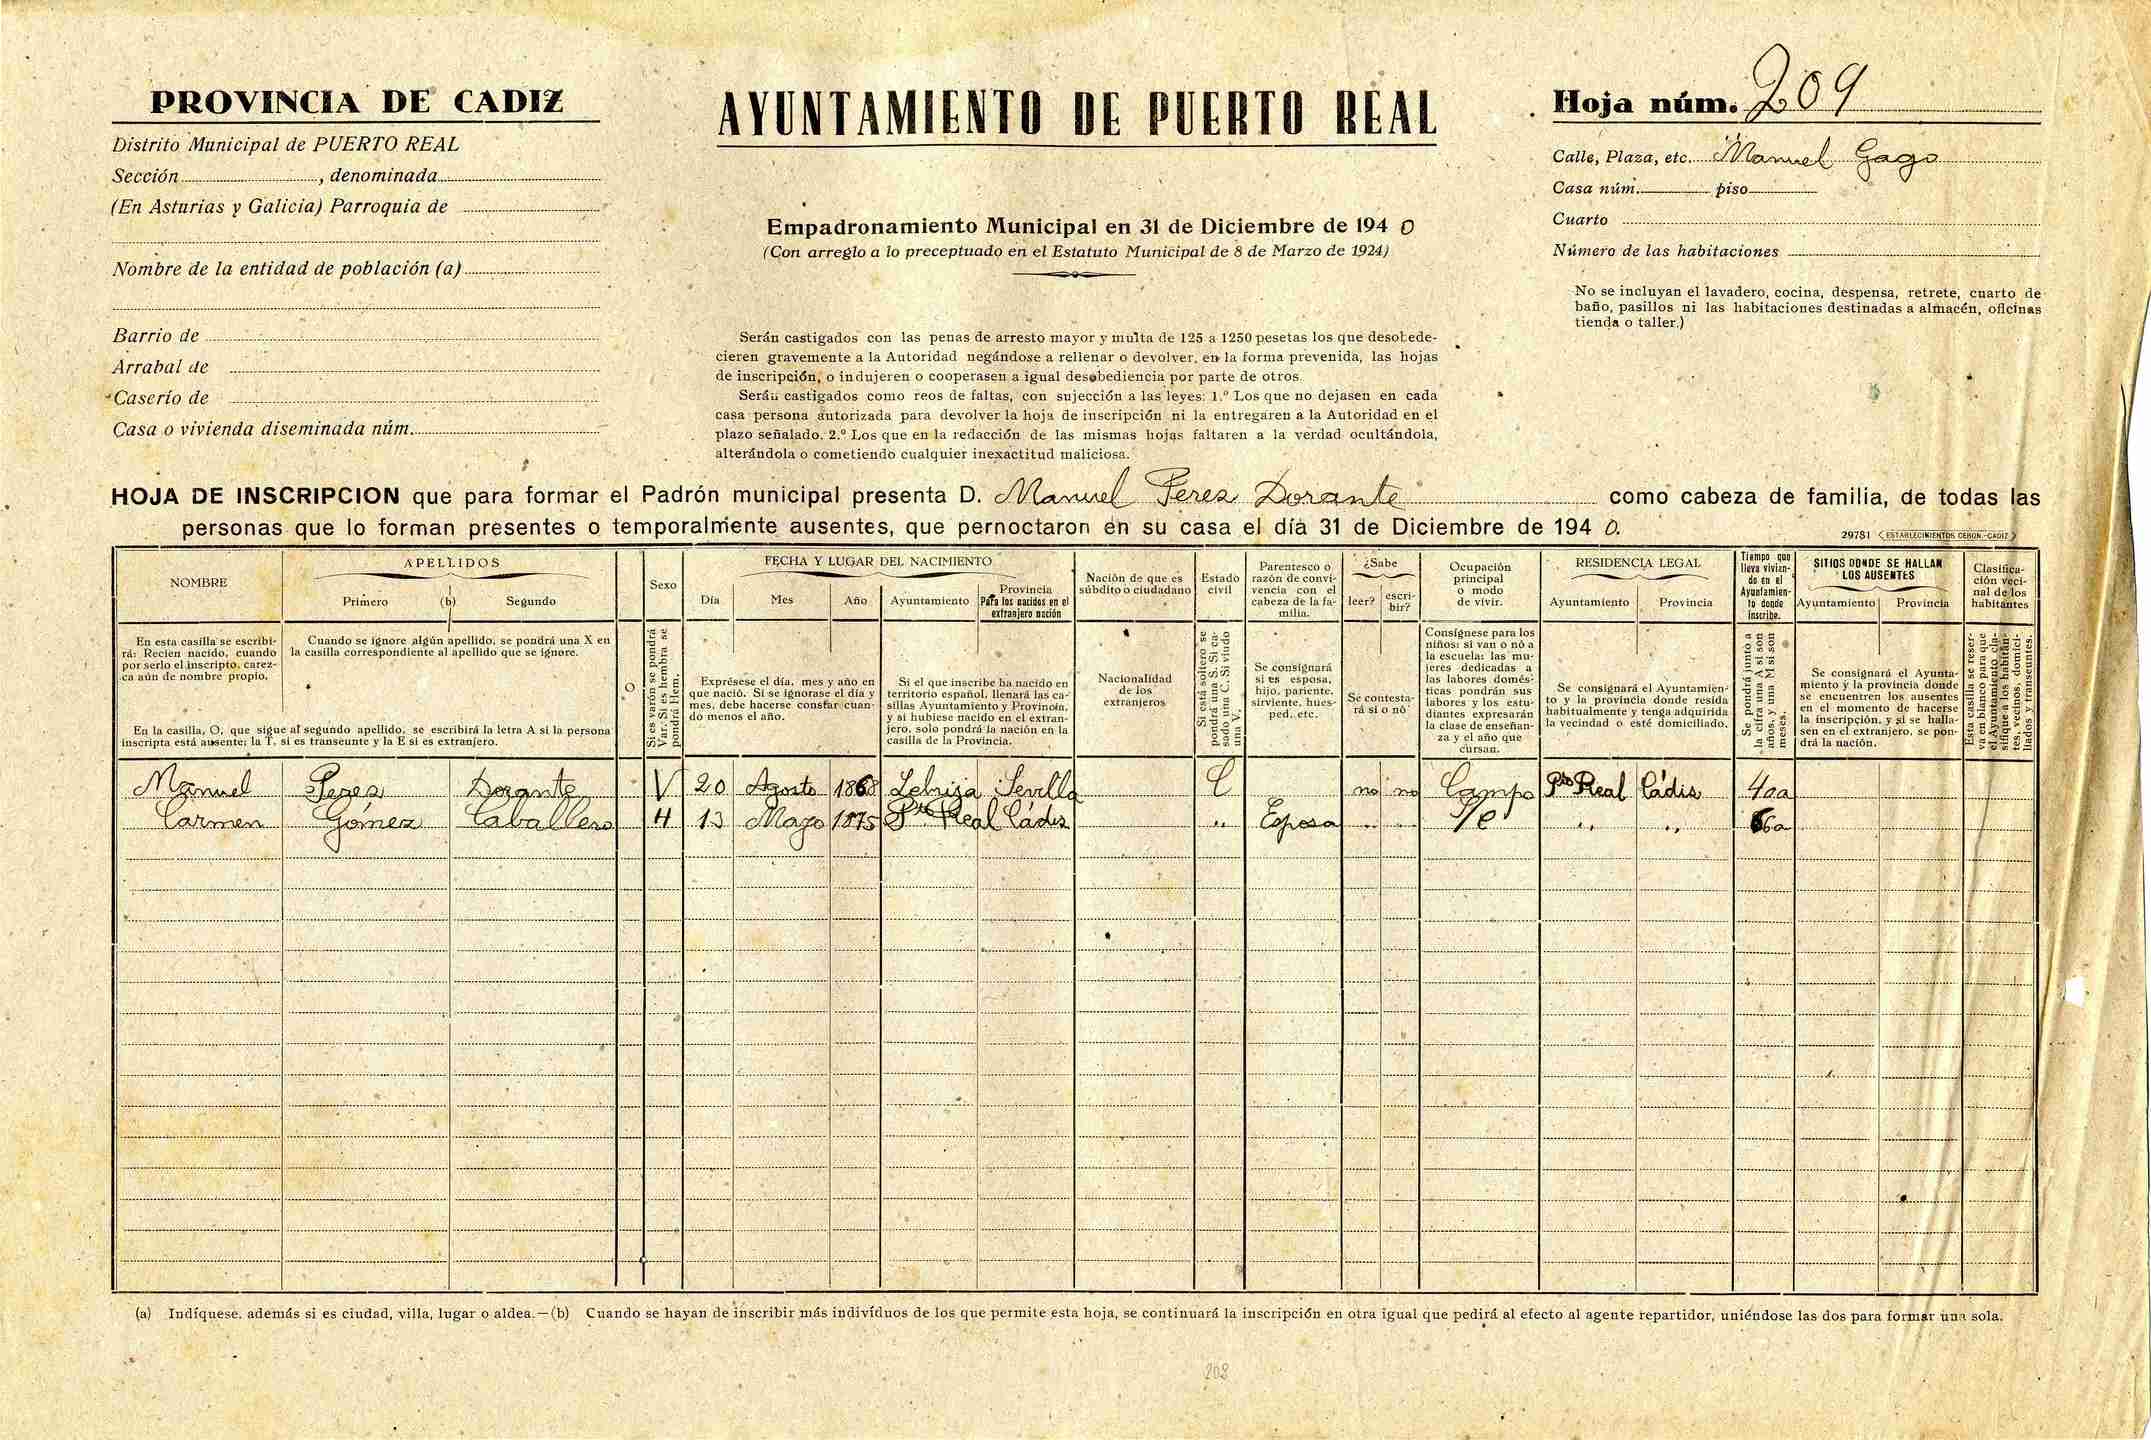 PROVINCIA DE CADIZ
Distrito Municipal de PUERTO REAL
Sección , denominada
(En Asturias y Galicia) Parroquia de
Nombre de la entidad de población (a)
Barrio de
Arrabal de
Caserío de
Casa o vivienda diseminada núm.
AYUNTAMIENTO DE PUERTO REAL
Empadronamiento Municipal en 31 de Diciembre de 194 0
(Con arreglo a lo preceptuado en el Estatuto Municipal de 8 de Marzo de 1924)
Serán castigados con las penas de arresto mayor y multa de 125 a 1250 pesetas los que desobede-
cieren gravemente a la Autoridad negándose a rellenar o devolver, en la forma prevenida, las hojas
de inscripción, o indujeren o cooperasen a igual desobediencia por parte de otros.
Serán castigados como reos de faltas, con sujección a las leyes: 1.º Los que no dejasen en cada
casa persona autorizada para devolver la hoja de inscripción ni la entregaren a la Autoridad en el
plazo señalado. 2.º Los que en la redacción de las mismas hojas faltaren a la verdad ocultándola,
alterándola o cometiendo cualquier inexactitud maliciosa.
Hoja núm. 209
Calle, Plaza, etc. Manuel Gago
Casa núm. piso
Cuarto
Número de las habitaciones
No se incluyan el lavadero, cocina, despensa, retrete, cuarto de
baño, pasillos ni las habitaciones destinadas a almacén, oficinas
tienda o taller.)
HOJA DE INSCRIPCION que para formar el Padrón municipal presenta D. Manuel Perez Dorante como cabeza de familia, de todas las
personas que lo forman presentes o temporalmente ausentes, que pernoctaron en su casa el día 31 de Diciembre de 194 0.
29781 ESTABLECIMIENTOS CERON.-CADIZ
NOMBRE
APELLIDOS
Primero (b) Segundo
O
Sexo
FECHA Y LUGAR DEL NACIMIENTO
Día Mes Año Ayuntamiento Provincia
Para los nacidos en el
extranjero nación
Nación de que es
súbdito o ciudadano
Estado
civil
Parentesco o
razón de convi-
vencia con el
cabeza de la fa-
milia.
¿Sabe
leer? escri-
bir?
Ocupación
principal
o modo
de vivir.
RESIDENCIA LEGAL
Ayuntamiento Provincia
Tiempo que
lleva vivien-
do en el
Ayuntamien-
to donde
inscribe.
SITIOS DONDE SE HALLAN
LOS AUSENTES
Ayuntamiento Provincia
Clasifica-
ción veci-
nal de los
habitantes
En esta casilla se escribi-
rá: Recien nacido, cuando
por serlo el inscripto, carez-
ca aún de nombre propio.
Cuando se ignore algún apellido, se pondrá una X en
la casilla correspondiente al apellido que se ignore.
En la casilla, O, que sigue al segundo apellido, se escribirá la letra A si la persona
inscripta está ausente; la T, si es transeunte y la E si es extranjero.
Si es varón se pondrá
Var. Si es hembra se
pondrá Hem.
Exprésese el día, mes y año en
que nació. Si se ignorase el día y
mes, debe hacerse constar cuan-
do menos el año.
Si el que inscribe ha nacido en
territorio español, llenará las ca-
sillas Ayuntamiento y Provincia,
y si hubiese nacido en el extran-
jero, solo pondrá la nación en la
casilla de la Provincia.
Nacionalidad
de los
extranjeros
Si está soltero se
pondrá una S. Si ca-
sado una C. Si viudo
una V.
Se consignará
si es esposa,
hijo, pariente,
sirviente, hues-
ped, etc.
Se contesta-
rá si o nó
Consígnese para los
niños: si van o nó a
la escuela; las mu-
jeres dedicadas a
las labores domés-
ticas pondrán sus
labores y los estu-
diantes expresarán
la clase de enseñan-
za y el año que
cursan.
Se consignará el Ayuntamien-
to y la provincia donde resida
habitualmente y tenga adquirida
la vecindad o esté domiciliado.
Se pondrá junto a
la cifra una A si son
años, y una M si son
meses.
Se consignará el Ayunta-
miento y la provincia donde
se encuentren los ausentes
en el momento de hacerse
la inscripción, y si se halla-
sen en el extranjero, se pon-
drá la nación.
Esta casilla se reser-
va en blanco para que
el Ayuntamiento cla-
sifique a los habitan-
tes, vecinos, domici-
liados y transeuntes.
Manuel Perez Dorante V 20 Agosto 1868 Lebrija Sevilla C no no Campo Pto Real Cádis 40a
Carmen Gómez Caballero H 13 Mayo 1875 Pto Real Cádis " Esposa " " S/c " " 66a
(a) Indíquese, además si es ciudad, villa, lugar o aldea.—(b) Cuando se hayan de inscribir más individuos de los que permite esta hoja, se continuará la inscripción en otra igual que pedirá al efecto al agente repartidor, uniéndose las dos para formar una sola.
208